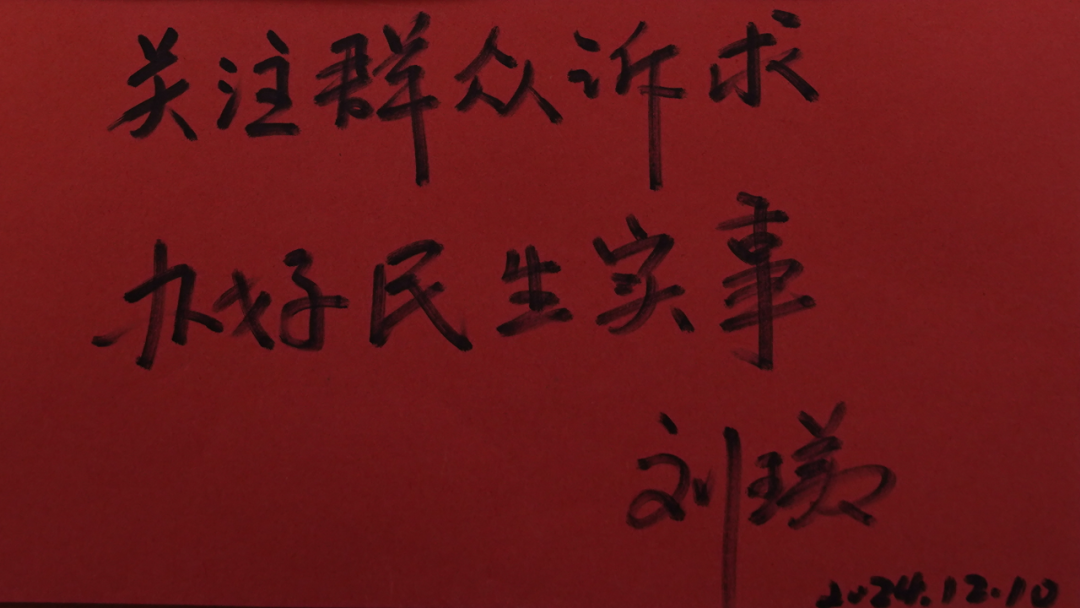 关注群众诉求
办好民生实事
刘瑛
2024.12.10